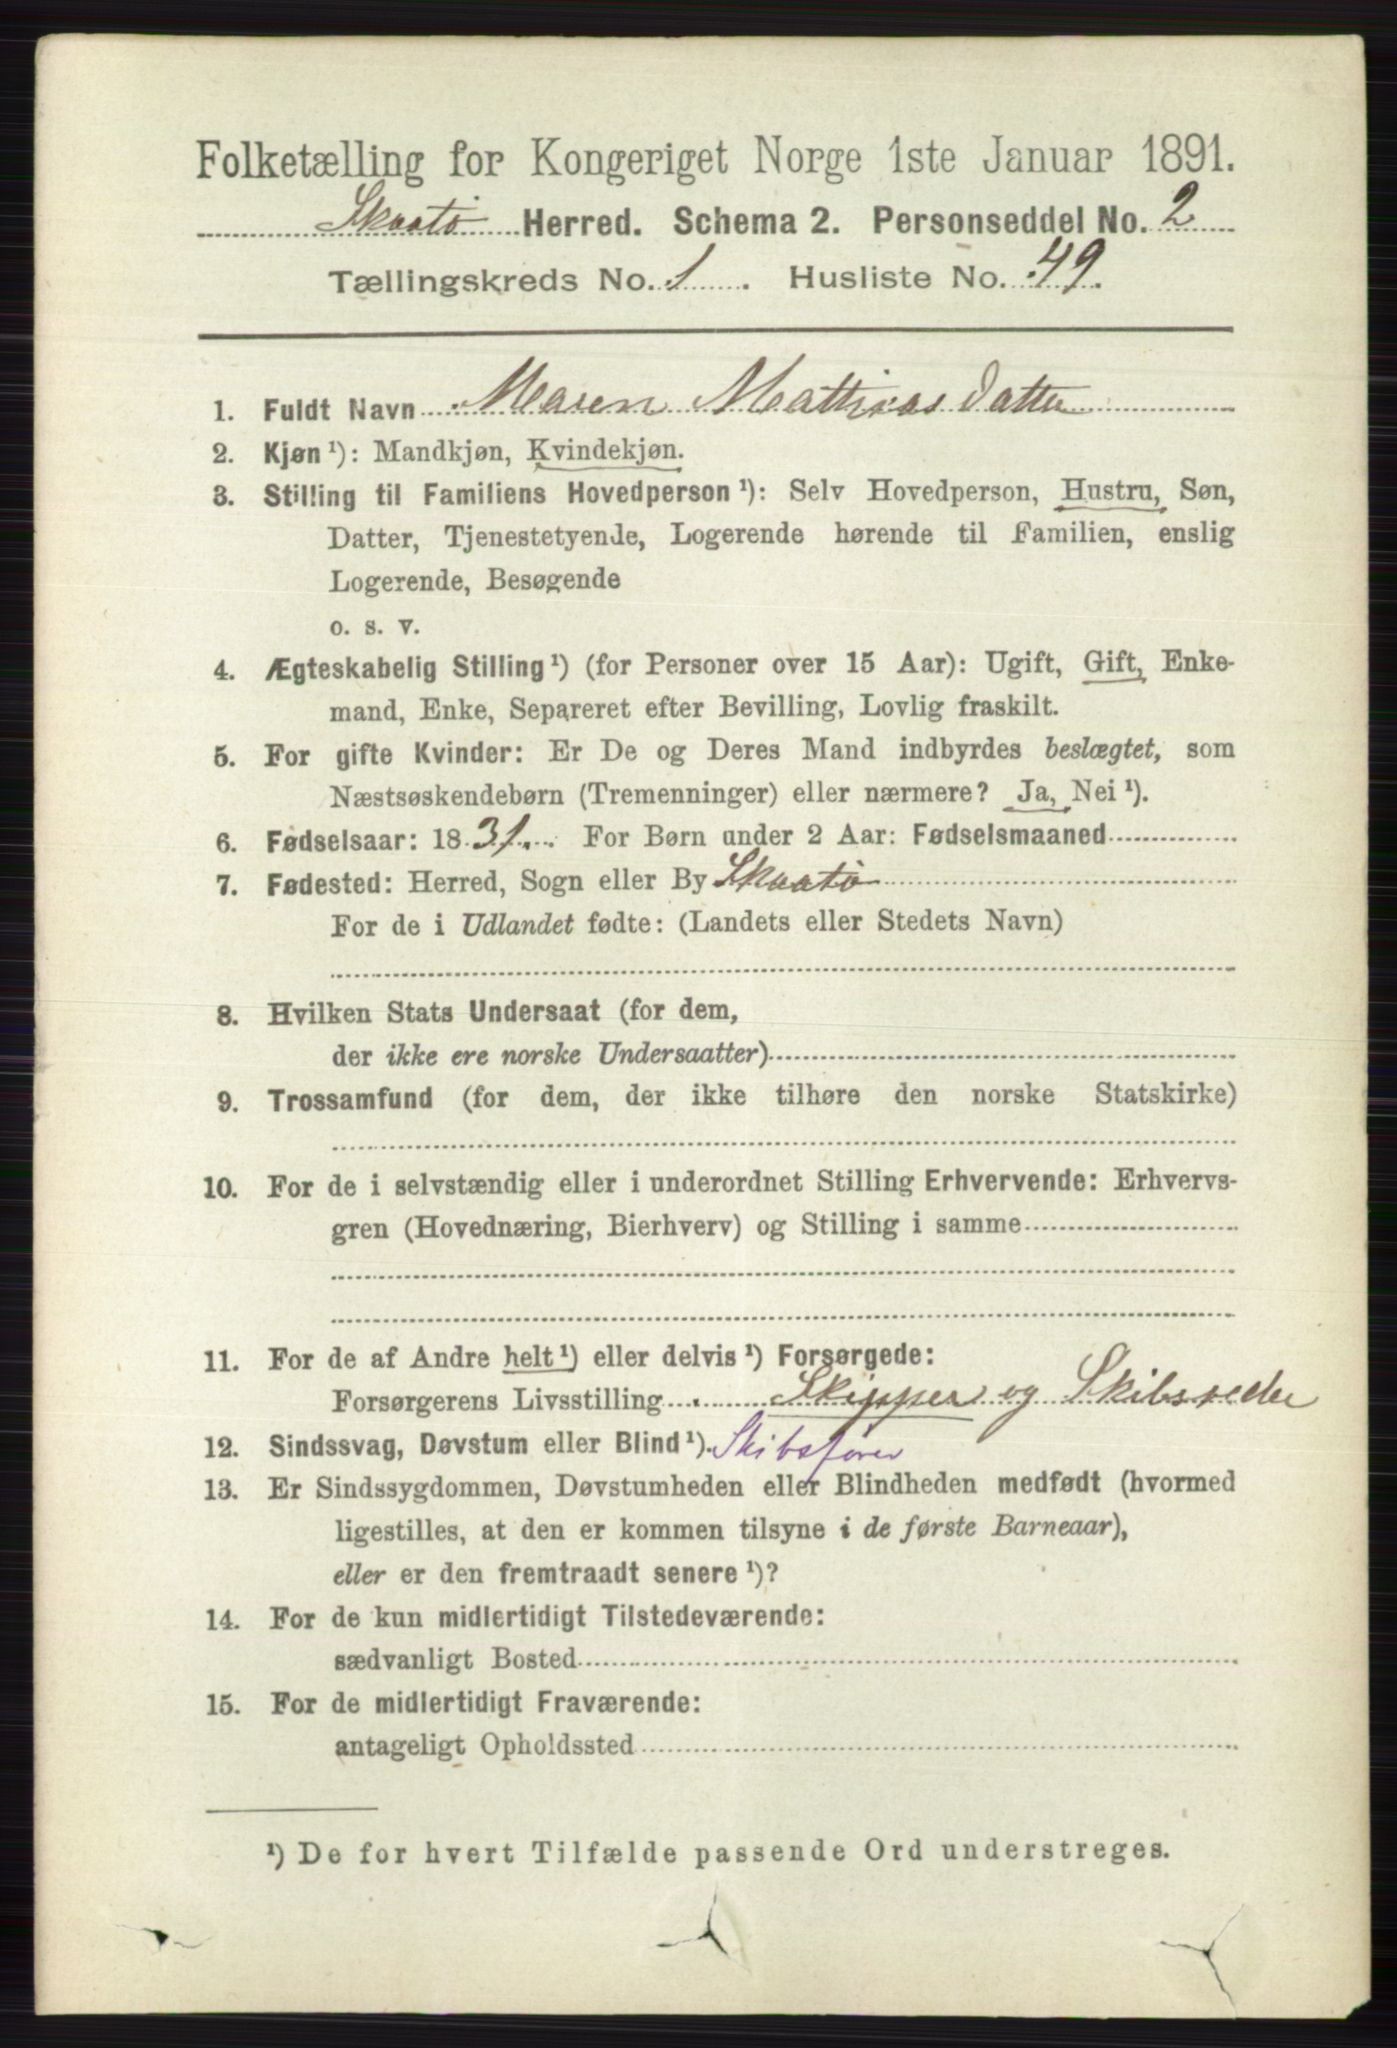 Folketælling for Kongeriget Norge 1ste Januar 1891.
Skaatø Herred. Schema 2. Personseddel No. 2
Tællingskreds No. 1. Husliste No. 49.
1. Fuldt Navn Maren Mathias Datter
2. Kjøn ¹): Mandkjøn, Kvindekjøn.
3. Stilling til Familiens Hovedperson ¹): Selv Hovedperson, Hustru, Søn,
Datter, Tjenestetyende, Logerende hørende til Familien, enslig
Logerende, Besøgende
o. s. v.
4. Ægteskabelig Stilling ¹) (for Personer over 15 Aar): Ugift, Gift, Enke-
mand, Enke, Separeret efter Bevilling, Lovlig fraskilt.
5. For gifte Kvinder: Er De og Deres Mand indbyrdes beslægtet, som
Næstsøskendebørn (Tremenninger) eller nærmere? Ja, Nei ¹).
6. Fødselsaar: 1831. For Børn under 2 Aar: Fødselsmaaned
7. Fødested: Herred, Sogn eller By Skaatø
For de i Udlandet fødte: (Landets eller Stedets Navn)
8. Hvilken Stats Undersaat (for dem,
der ikke ere norske Undersaatter)
9. Trossamfund (for dem, der ikke tilhøre den norske Statskirke)
10. For de i selvstændig eller i underordnet Stilling Erhvervende: Erhvervs-
gren (Hovednæring, Bierhverv) og Stilling i samme
11. For de af Andre helt ¹) eller delvis ¹) Forsørgede:
Forsørgerens Livsstilling Skipper og Skibsreder
12. Sindssvag, Døvstum eller Blind ¹). Skibsfører
13. Er Sindssygdommen, Døvstumheden eller Blindheden medfødt (hvormed
ligestilles, at den er kommen tilsyne i de første Barneaar),
eller er den fremtraadt senere ¹)?
14. For de kun midlertidigt Tilstedeværende:
sædvanligt Bosted
15. For de midlertidigt Fraværende:
antageligt Opholdssted
¹) De for hvert Tilfælde passende Ord understreges.